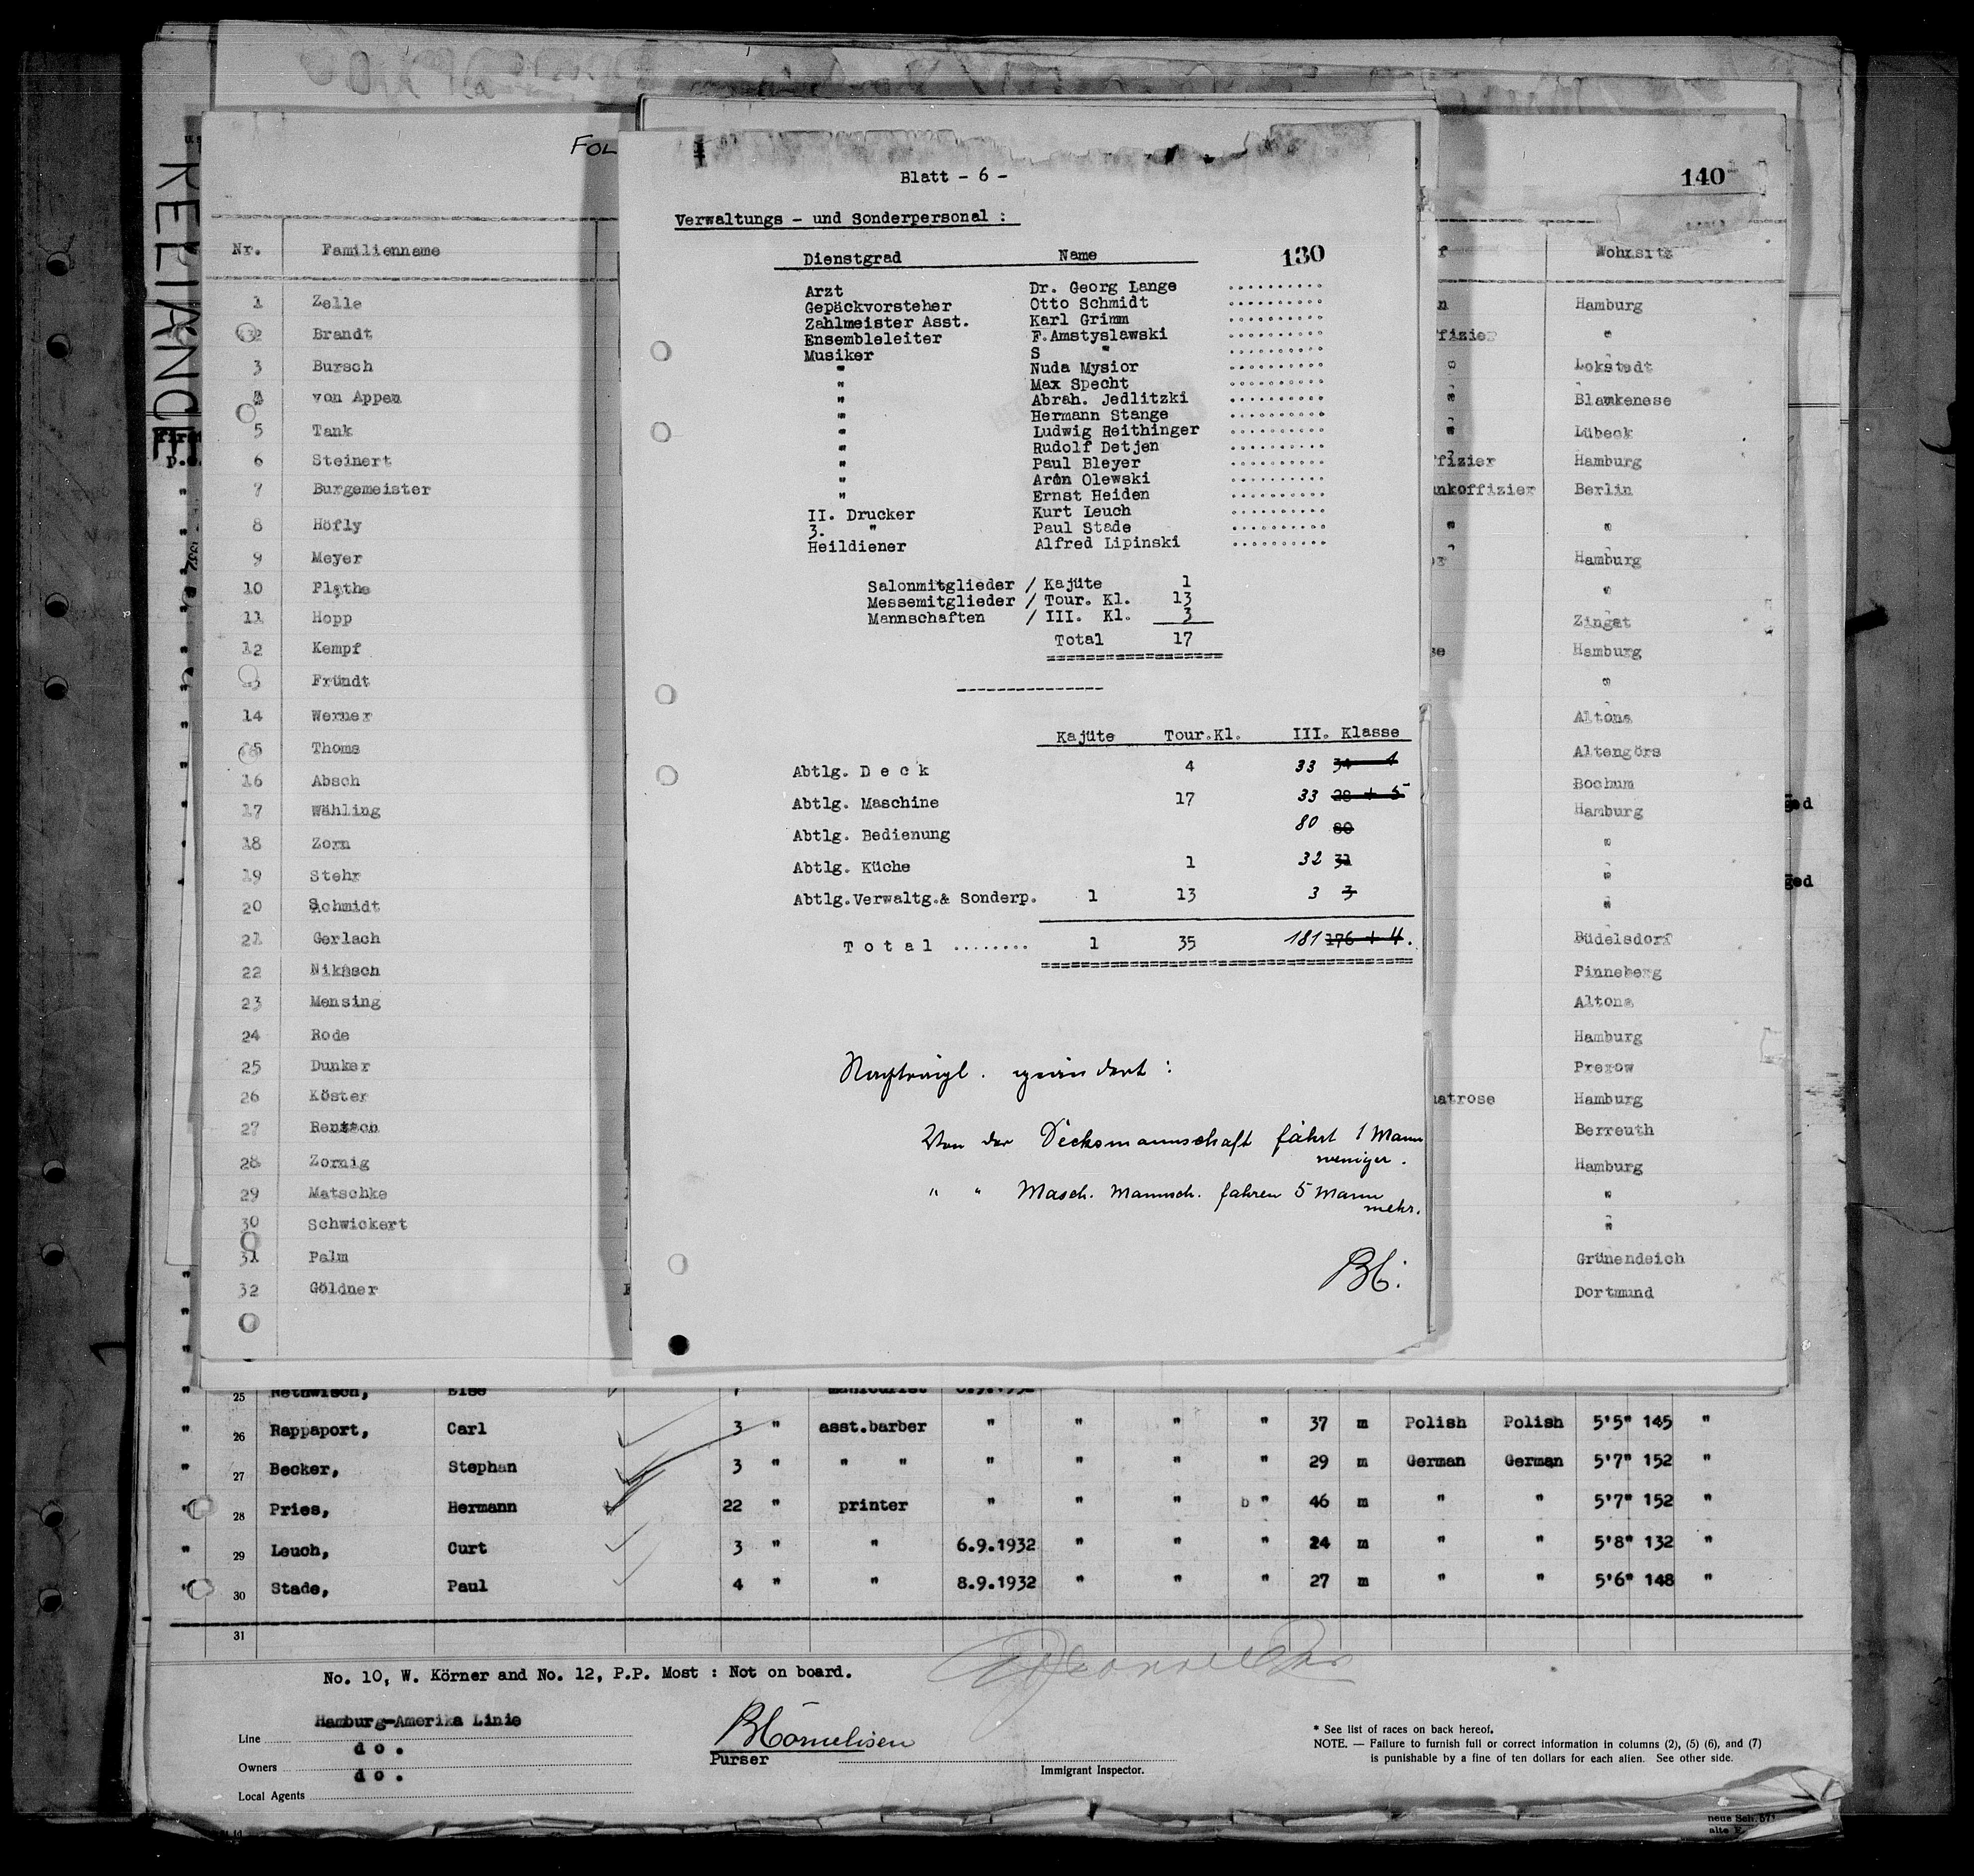 RELIANCE
FOL
140
Nr. Familienname
1 Zelle
2 Brandt
3 Bursch
4 von Appen
5 Tank
6 Steinert
7 Burgemeister
8 Höfly
9 Meyer
10 Plathe
11 Hopp
12 Kempf
Fründt
14 Werner
15 Thoms
16 Absch
17 Wähling
18 Zorn
19 Stehr
20 Schmidt
21 Gerlach
22 Nikasch
23 Mensing
24 Rode
25 Dunker
26 Köster
27 Rentsch
28 Zornig
29 Matschke
30 Schwickert
31 Palm
32 Göldner
Blatt - 6 -
Verwaltungs - und Sonderpersonal :
Dienstgrad Name 130
Arzt Dr. Georg Lange ..........
Gepäckvorsteher Otto Schmidt ..........
Zahlmeister Asst. Karl Grimm ..........
Ensembleleiter F.Amstyslawski ..........
Musiker S " ..........
" Nuda Mysior ..........
" Max Specht ..........
" Abrah. Jedlitzki ..........
" Hermann Stange ..........
" Ludwig Reithinger ..........
" Rudolf Detjen ..........
" Paul Bleyer ..........
" Aron Olewski ..........
" Ernst Heiden ..........
II. Drucker Kurt Leuch ..........
3. " Paul Stade ..........
Heildiener Alfred Lipinski ..........
Salonmitglieder / Kajüte 1
Messemitglieder / Tour. Kl. 13
Mannschaften / III. Kl. 3
Total 17
Kajüte Tour.Kl. III. Klasse
Abtlg. D e c k 4 33 34 - 1
Abtlg. Maschine 17 33 28 + 5
Abtlg. Bedienung 80 80
Abtlg. Küche 1 32 31
Abtlg.Verwaltg.& Sonderp. 1 13 3 3
T o t a l ........ 1 35 181 176 + 4.
Von der Decksmannschaft fährt 1 Mann
weniger.
" " Masch. Mannsch. fahren 5 Mann
mehr.
BC.
Wohnsitz
Hamburg
"
ffizier
Lokstedt
Blankenese
Lübeck
ffizier Hamburg
nkoffizier Berlin
"
Hamburg
"
Zingst
Hamburg
"
Altona
Altengörs
Bochum
Hamburg
"
"
"
Büdelsdorf
Pinneberg
Altona
Hamburg
Prerow
matrose Hamburg
Berreuth
Hamburg
"
"
Grünendeich
Dortmund
ged
ged
25 Rethwisch, Else
" 26 Rappaport, Carl 3 " asst.barber " " " " 37 m Polish Polish 5'5" 145 "
" 27 Becker, Stephan 3 " " " " " " " 29 m German German 5'7" 152 "
" 28 Pries, Hermann 22 " printer " " " b " 46 m " " 5'7" 152 "
" 29 Leuch, Curt 3 " " 6.9.1932 " " " 24 m " " 5'8" 132 "
" 30 Stade, Paul 4 " " 8.9.1932 " " " 27 m " " 5'6" 148 "
31
No. 10, W. Körner and No. 12, P.P. Most : Not on board.
Line Hamburg-Amerika Linie
Owners d o .
Local Agents d o .
BCornelisen
Purser
Immigrant Inspector.
* See list of races on back hereof.
NOTE. — Failure to furnish full or correct information in columns (2), (5) (6), and (7)
is punishable by a fine of ten dollars for each alien. See other side.